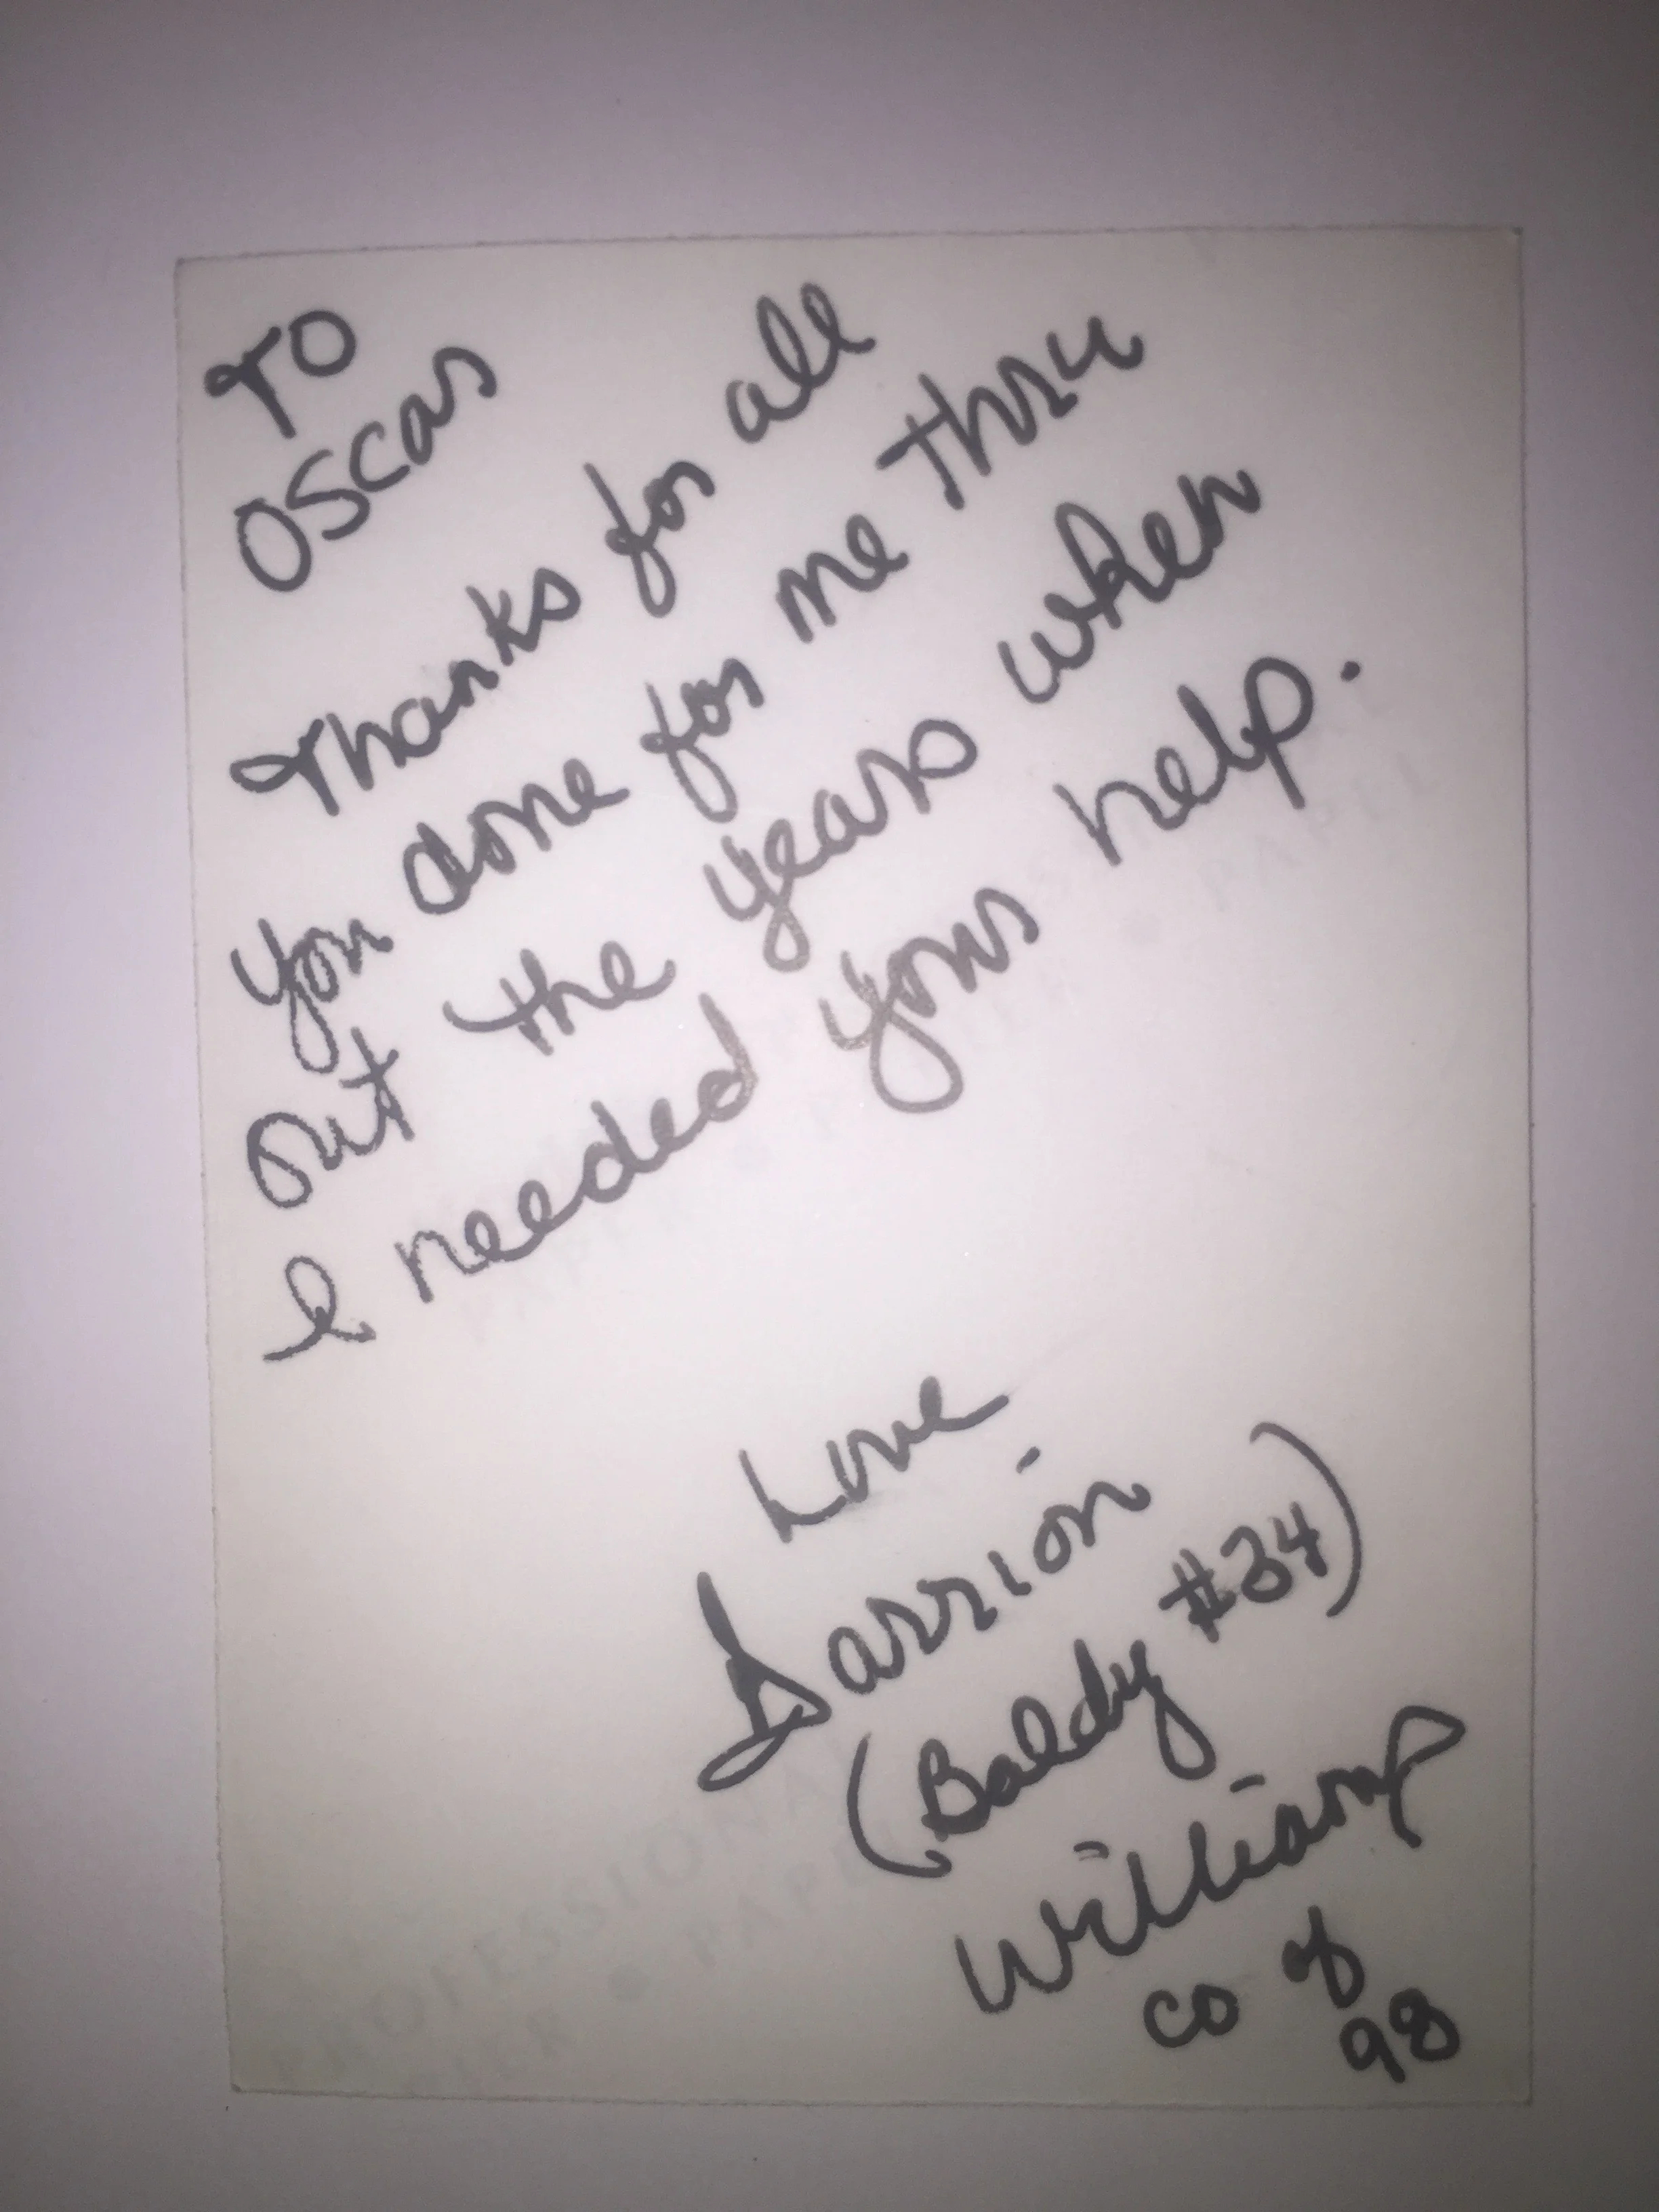 TO
OSCAR
Thanks for all
you done for me thru
out the years when
I needed your help.
Love
Darrion
(Baldy #34)
Williams
CO of
98
PROFESSIONAL